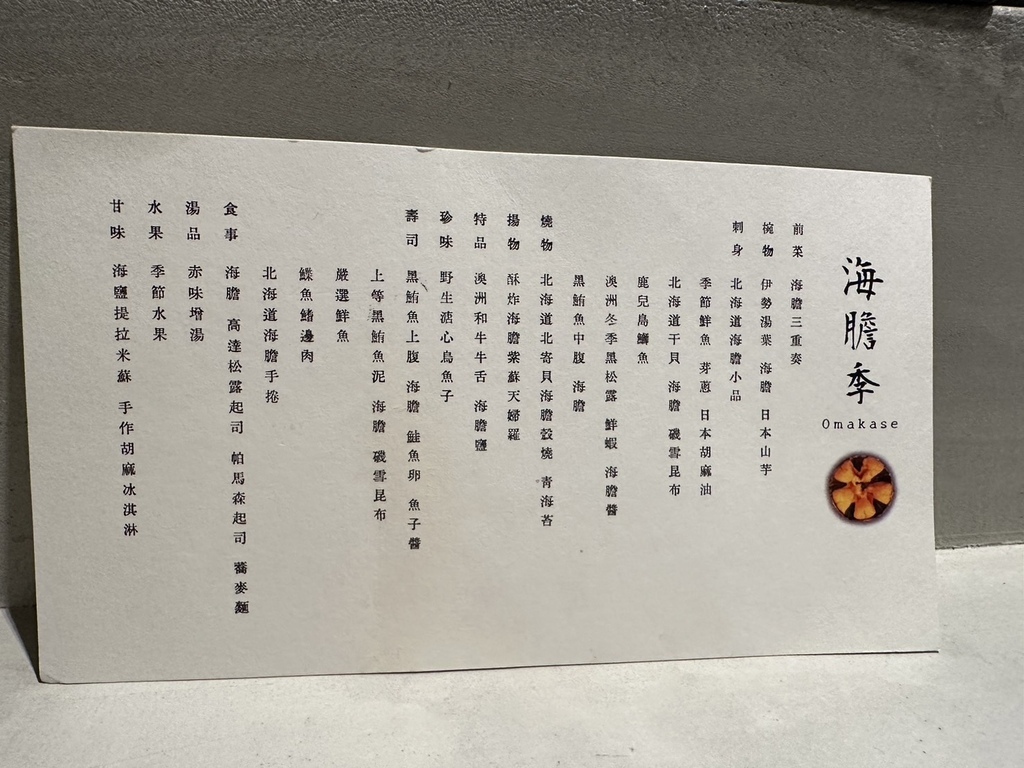 海膽季
Omakase
前菜 海膽三重奏
椀物 伊勢湯葉 海膽 日本山芋
刺身 北海道海膽小品
季節鮮魚 芽蔥 日本胡麻油
北海道干貝 海膽 磯雪昆布
鹿兒島鰤魚
澳洲冬季黑松露 鮮蝦 海膽醬
黑鮪魚中腹 海膽
燒物 北海道北寄貝海膽殼燒 青海苔
揚物 酥炸海膽紫蘇天婦羅
特品 澳洲和牛牛舌 海膽鹽
珍味 野生溏心烏魚子
壽司 黑鮪魚上腹 海膽 鮭魚卵 魚子醬
上等黑鮪魚泥 海膽 磯雪昆布
嚴選鮮魚
鰈魚鰭邊肉
北海道海膽手捲
食事 海膽 高達松露起司 帕馬森起司 蕎麥麵
湯品 赤味增湯
水果 季節水果
甘味 海鹽提拉米蘇 手作胡麻冰淇淋